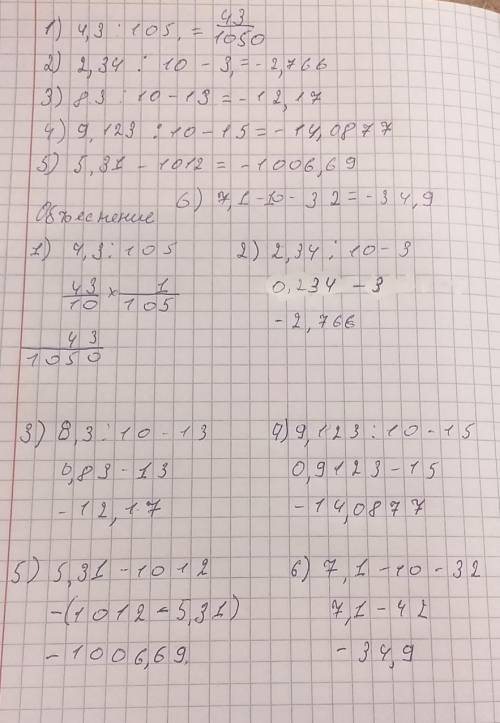 1) 4,3 : 105, = 43/1050
2) 2,34 : 10 - 3, = - 2,766
3) 83 : 10 - 13 = - 12,17
4) 9,123 : 10 - 15 = - 14,0877
5) 5,31 - 1012 = - 1006,69
6) 7,1 - 10 - 32 = - 34,9
Объяснение
1) 4,3 : 105
43/10 × 1/105
43/1050
2) 2,34 : 10 - 3
0,234 - 3
- 2,766
3) 8,3 : 10 - 13
0,83 - 13
- 12,17
4) 9,123 : 10 - 15
0,9123 - 15
- 14,0877
5) 5,31 - 1012
-(1012 - 5,31)
- 1006,69.
6) 7,1 - 10 - 32
7,1 - 42
- 34,9